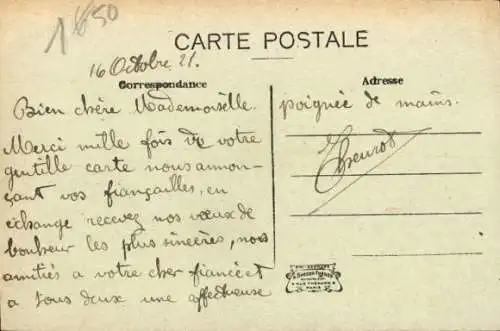 1850
CARTE POSTALE
16 Octobre 21.
Correspondance
Adresse
Bien chère Mademoiselle.
Merci mille fois de votre
gentille carte nous annon-
çant vos fiançailles, en
échange recevez nos vœux de
bonheur les plus sincères, nos
amitiés a votre cher fiancé et
a tous deux une affectueuse
poignée de mains.